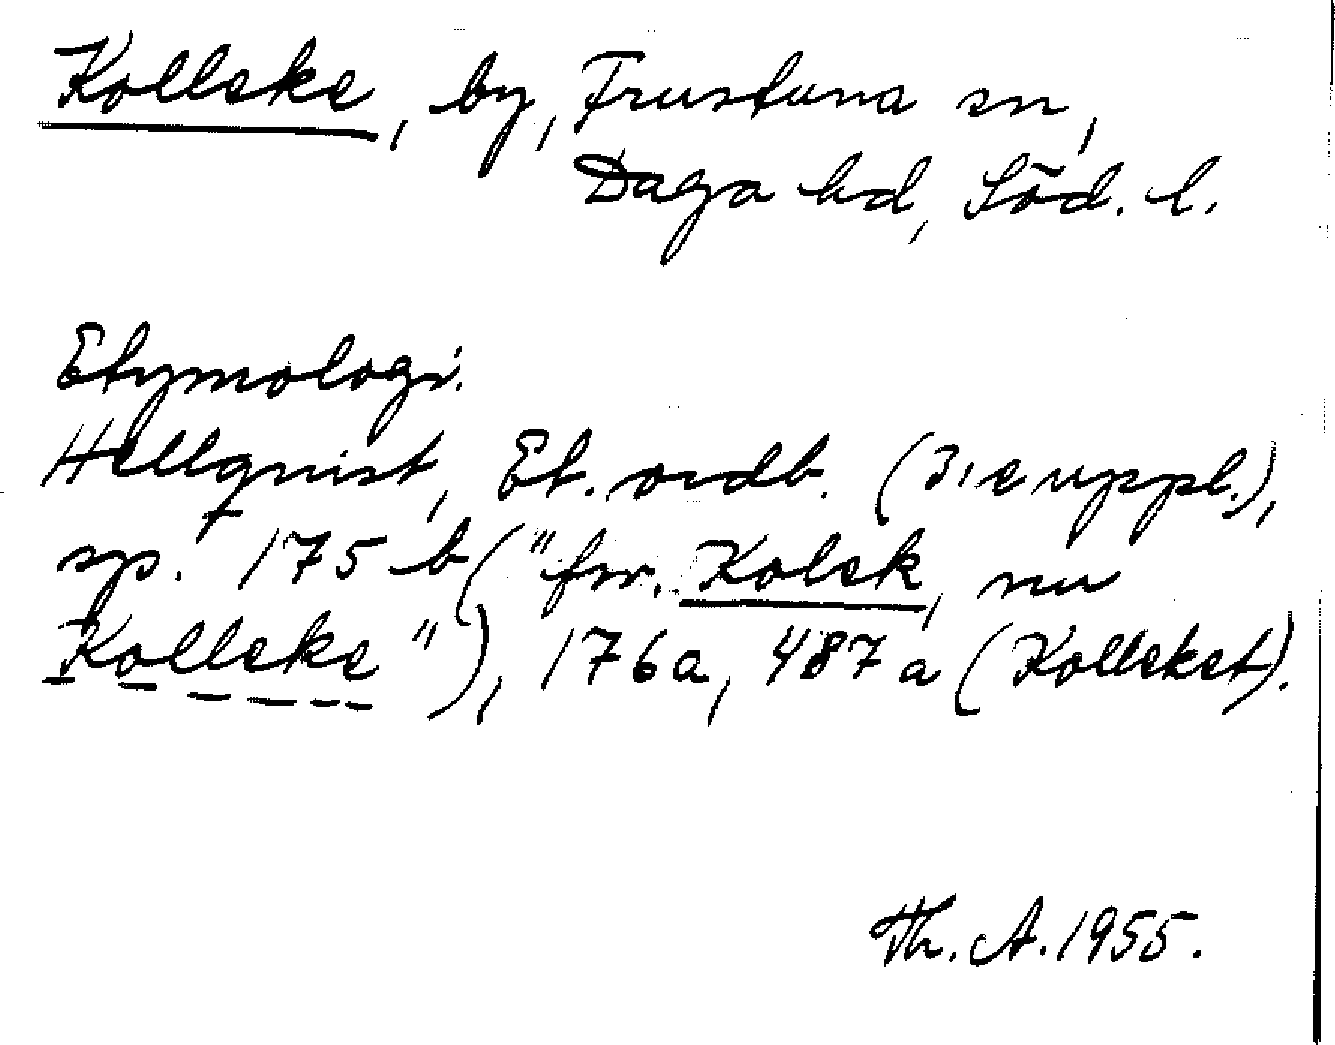 Kolleke, by, Frustuna sn,
Daga hd, Söd. l.
Etymologi.
Hellquist, Et. ordb. (3:e uppl.),
sp. 175 b ("fsv. Kolek, nu
Kolleke"), 176a, 487a (Kollekst).
Th. A. 1955.